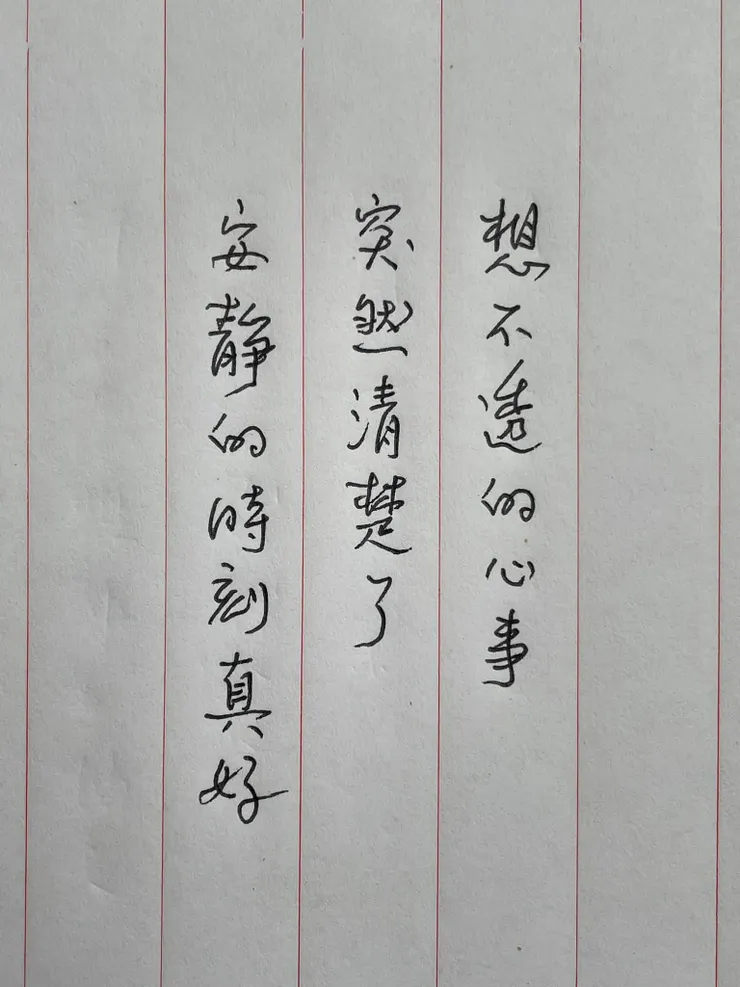 想不透的心事
突然清楚了
安静的時刻真好